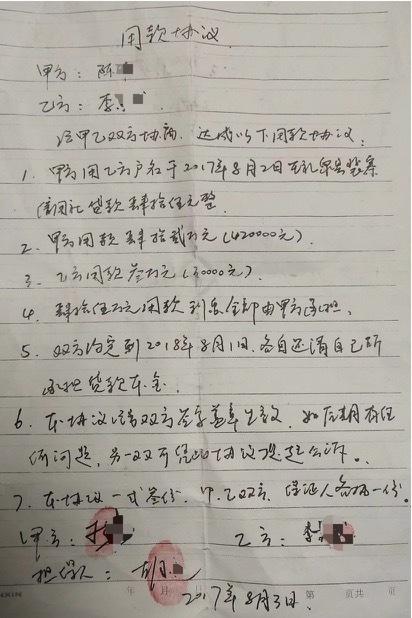 用款协议
甲方：陈
乙方：李
经甲乙双方协商，达成以下用款协议：
1. 甲方用乙方户名于2017年8月2日在
信用社贷款肆拾伍万整
2. 甲方用款肆拾贰万元（420000元）.
3. 乙方用款叁万元（30000元）
4. 肆拾伍万元用款利息全部由甲方承担.
5. 双方约定到2018年8月1日，各自还清自己所
承担贷款本金.
6. 本协议经双方签字盖章生效，如后期有任
何问题，另一双可凭此协议提起公诉。
7. 本协议一式叁份，甲、乙双方、保证人各执一份。
甲方：
乙方：李
担保人：
年 月 第 页共 页
2017年8月3日.